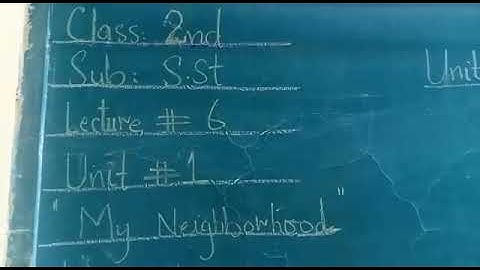 Class: 2nd
Sub: S.St
Lecture # 6
Unit # 1
" My Neighborhood "
Unit